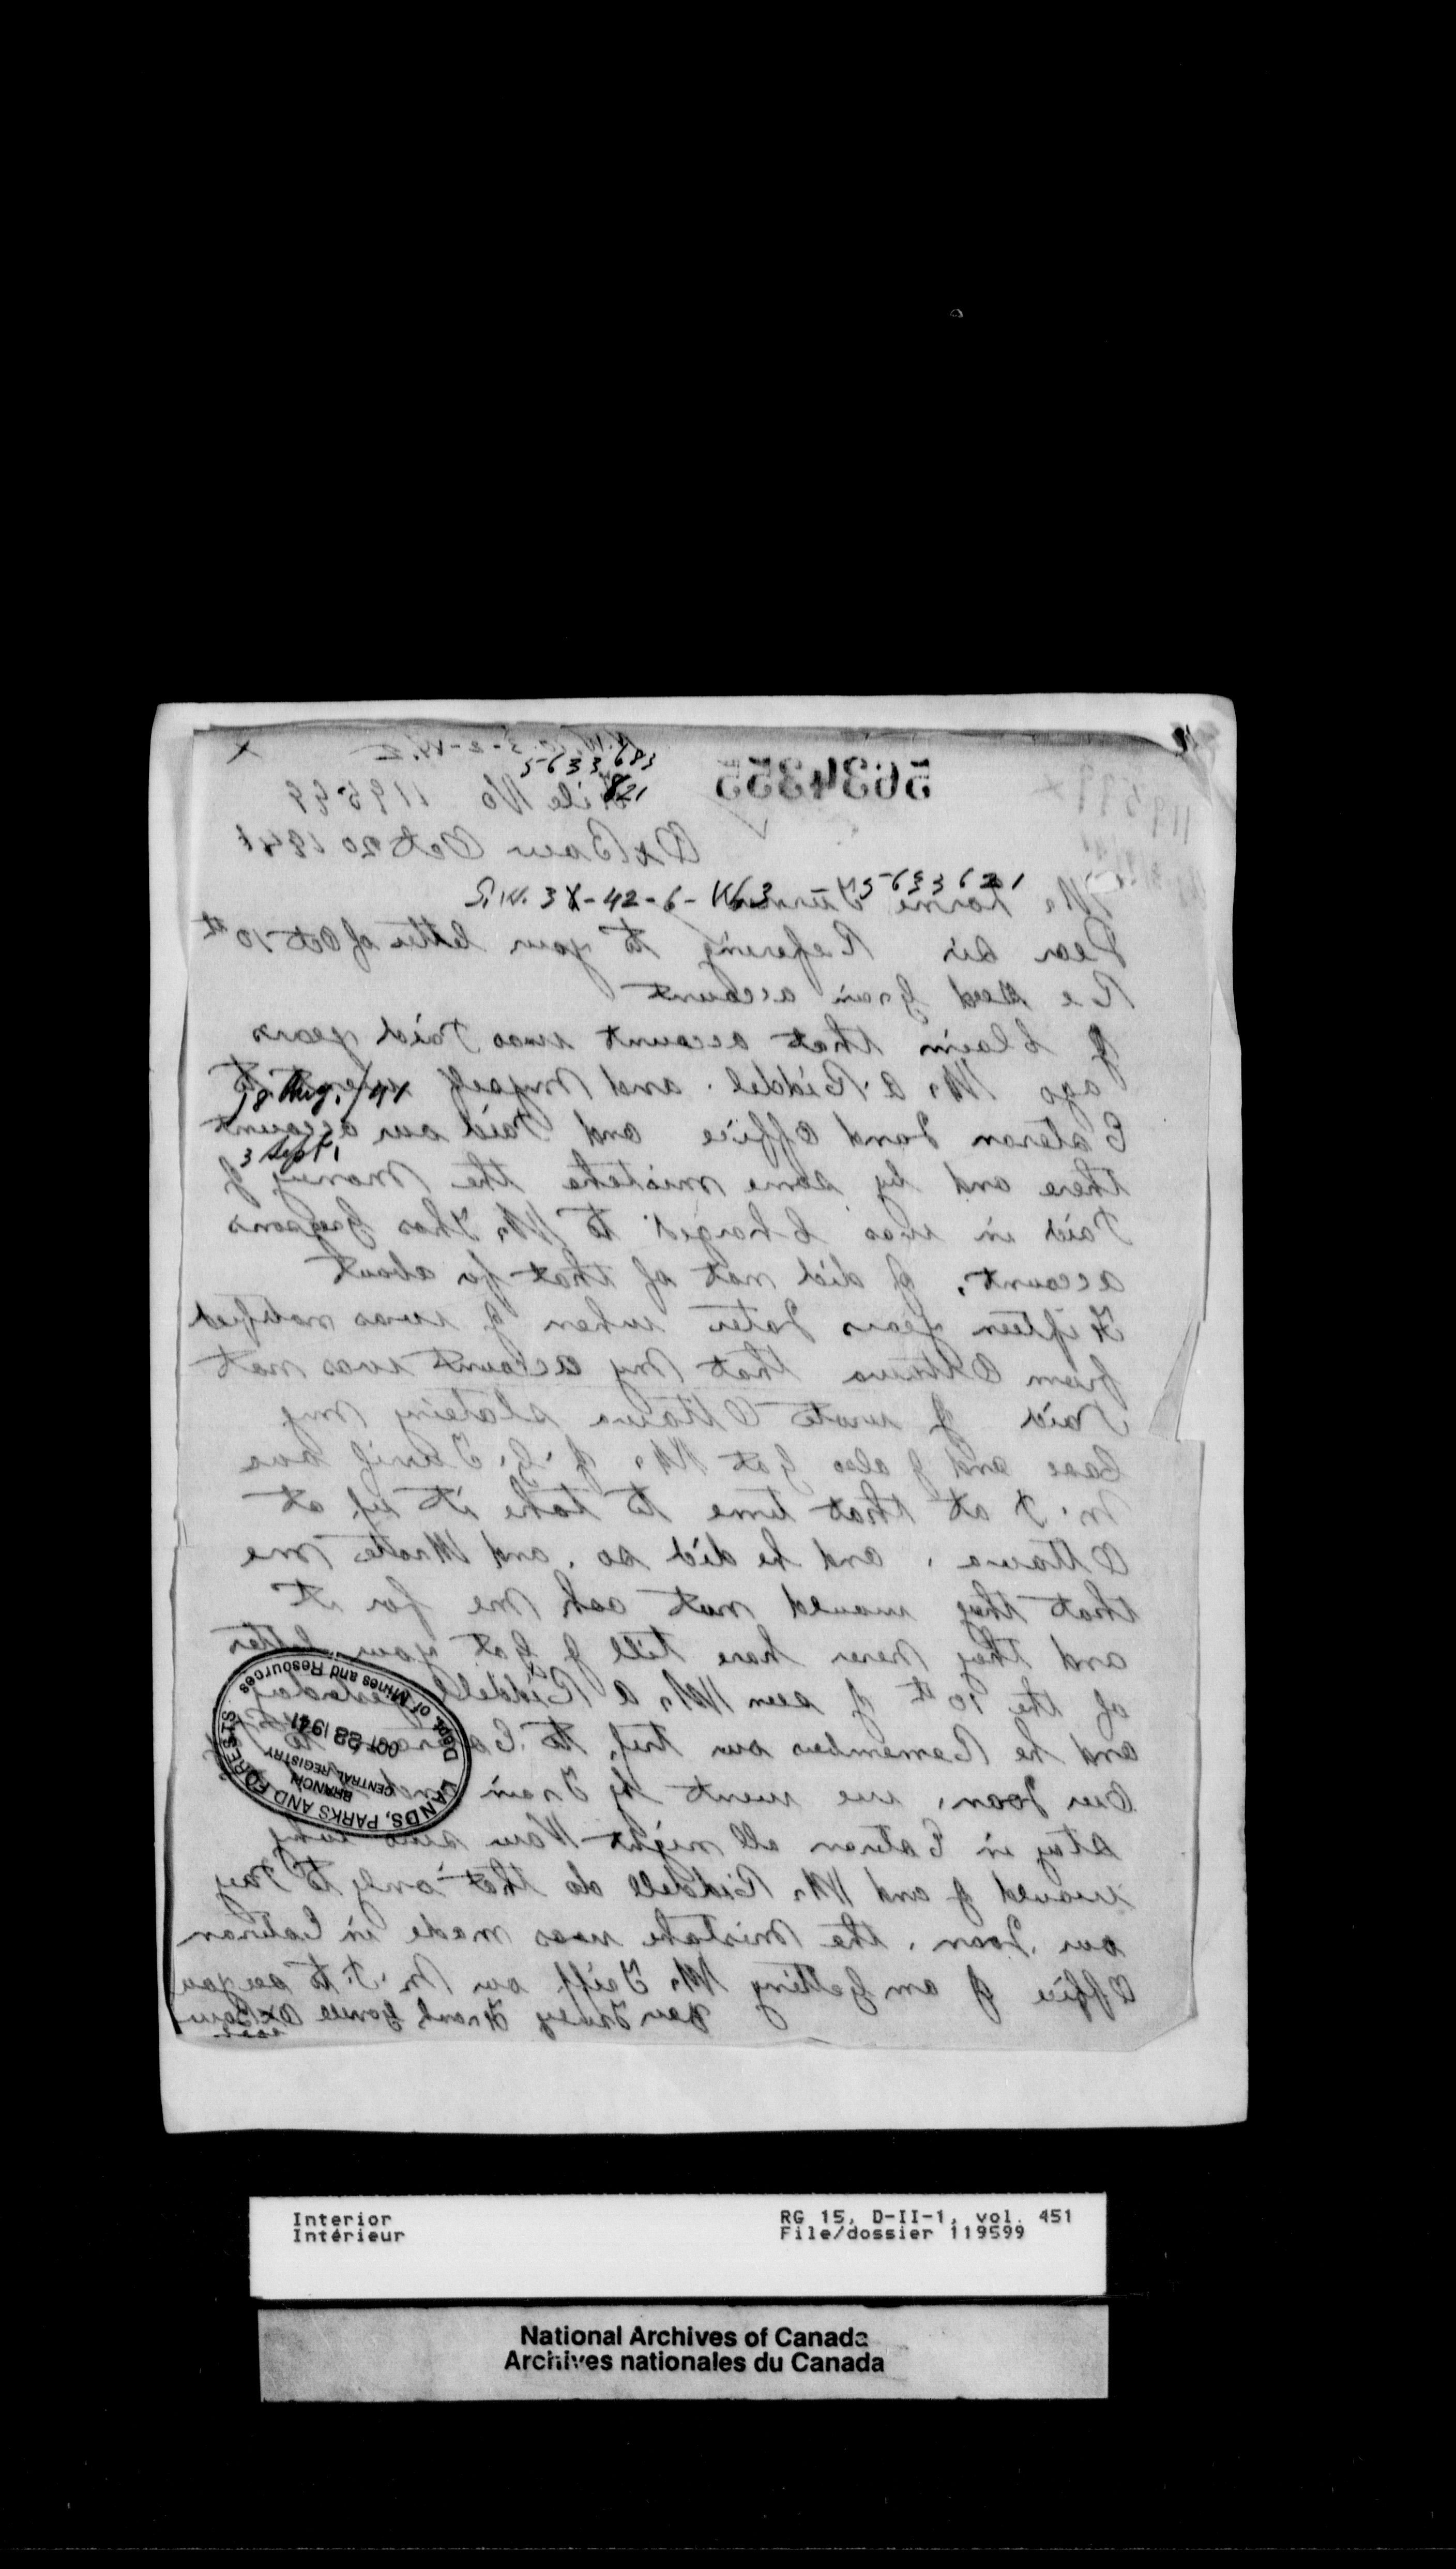 N.W. 10-3-2-W.2
5633683
x
5634355
821
File No 119599
119599 x
OxBow Oct 20 1941
5633621
S.W. 34-42-6-W63
Mr Lorne Turner
Dear Sir Refering to your letter of Oct 10th
Re seed grain account
I Claim that account was Paid years
ago Mr A. Riddel. and Myself went to
18 Aug. /41
Estevan Land Office and Paid our account
3 Sept,
there and by some misteke the Money I
Paid in was Charged to Mr Thos
account. I did not of that for about
Fifteen years Later when I was notified
from Ottawa that My account was not
Paid I wrote Ottawa stateing my
Case and I also got Mr J. G. Turrif was
M. P at that time to take it up at
Ottawa. and he did so. and Wrote me
that they would not ask me for it
and they never have till I got your letter
of the 10th I seen Mr A Riddell yesterday
and he Remembers our trip to Estevan to Pay
our Loan. we went by Train and
stay in Estevan all night Now sir why
would I and Mr Riddell do that only to Pay
our Loan. the Mistake was made in Estevan
Office I am getting Mr our M.P. to see you
Yours Truly Frank OxBow
Sask
LANDS, PARKS AND FORESTS
BRANCH
CENTRAL REGISTRY
OCT 23 1941
Dept. of Mines and Resources
Interior
Intérieur
RG 15, D-II-1, vol. 451
File/dossier 119599
National Archives of Canada
Archives nationales du Canada